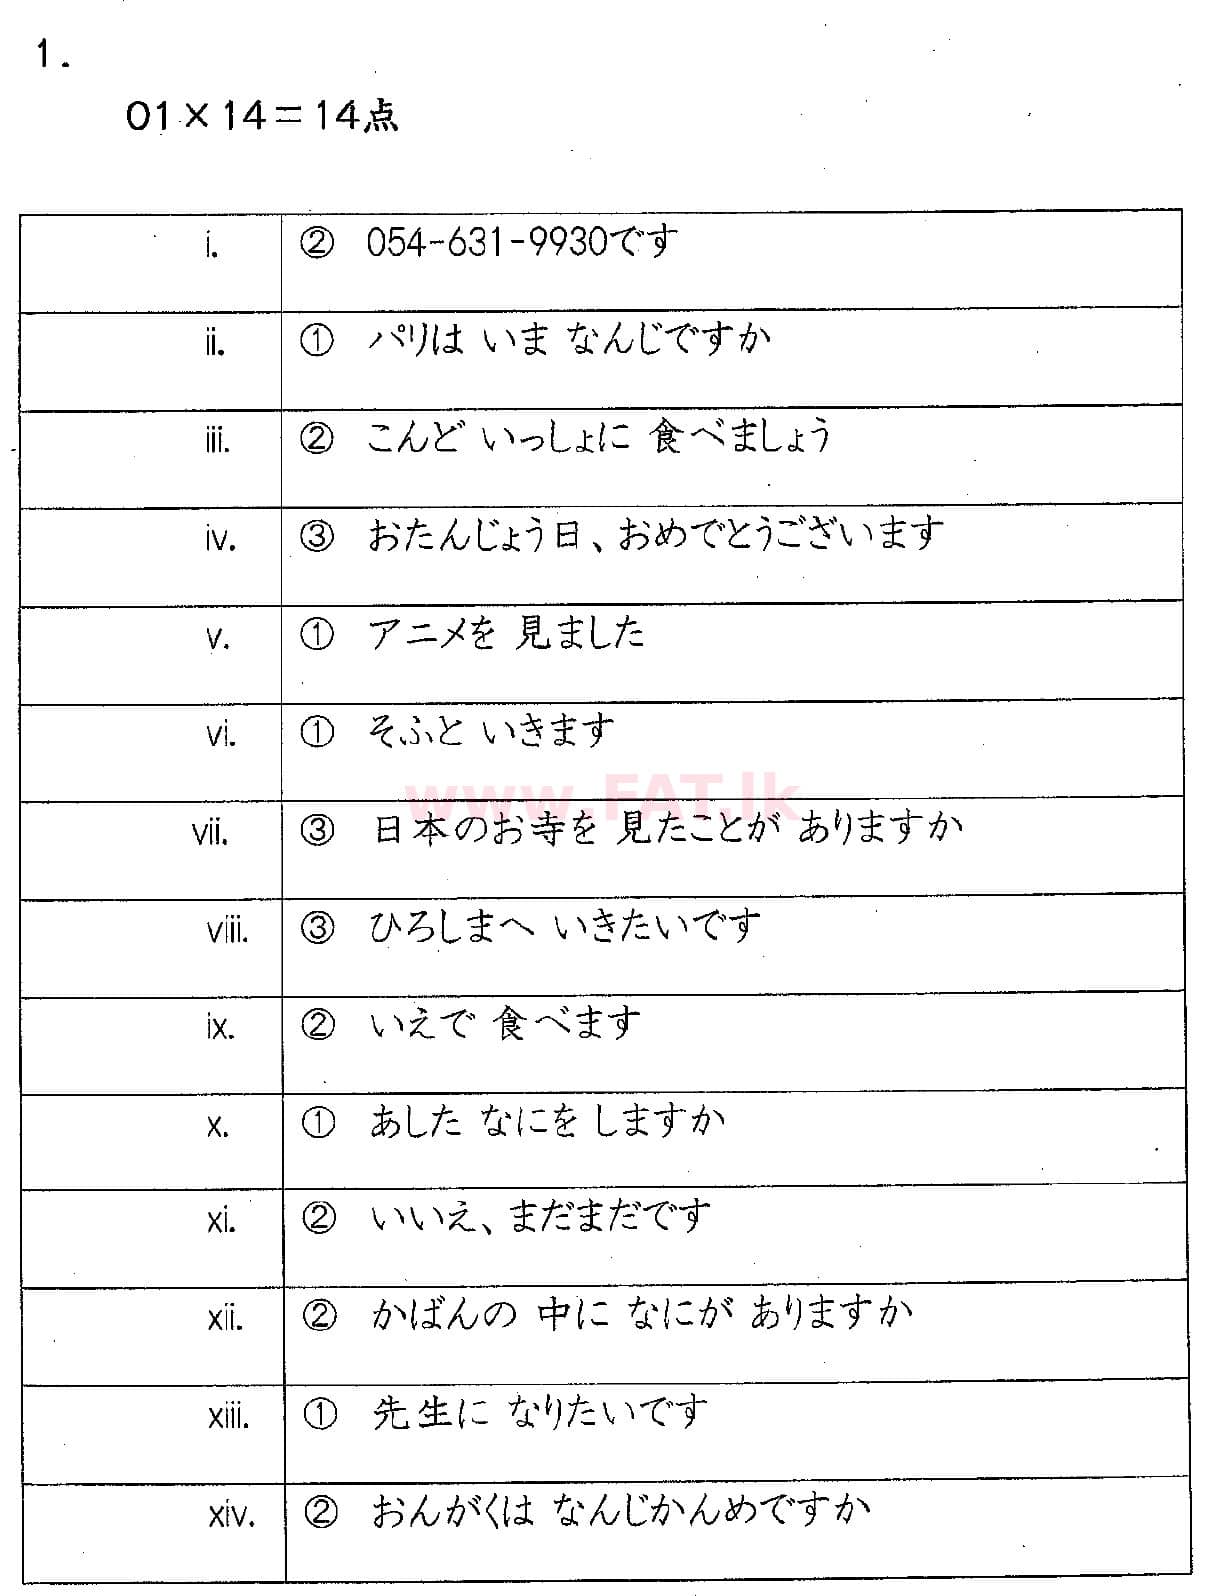 1.
01×14=14点
i. ② 054-631-9930です
ii. ① パリは いま なんじですか
iii. ② こんど いっしょに 食べましょう
iv. ③ おたんじょう日、おめでとうございます
v. ① アニメを 見ました
vi. ① そふと いきます
www.FAT.lk
vii. ③ 日本のお寺を 見たことが ありますか
viii. ③ ひろしまへ いきたいです
ix. ② いえで 食べます
x. ① あした なにを しますか
xi. ② いいえ、まだまだです
xii. ② かばんの 中に なにが ありますか
xiii. ① 先生に なりたいです
xiv. ② おんがくは なんじかんめですか